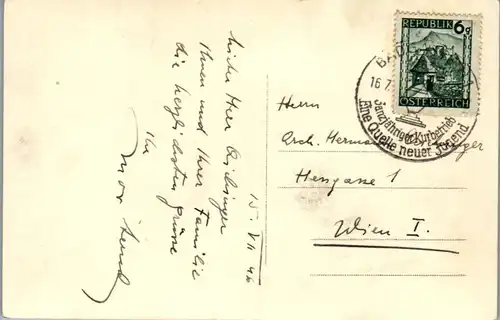 15. VII 46
Lieber Herr
Ihnen und Ihrer Familie
die herzlichsten Grüsse
Ihr
REPUBLIK 6g
ÖSTERREICH
BAD
16.7.
Ganzjähriger Kurbetrieb
Eine Quelle neuer Jugend.
Herrn
Arch. Hermann
Hessgasse 1
Wien I.